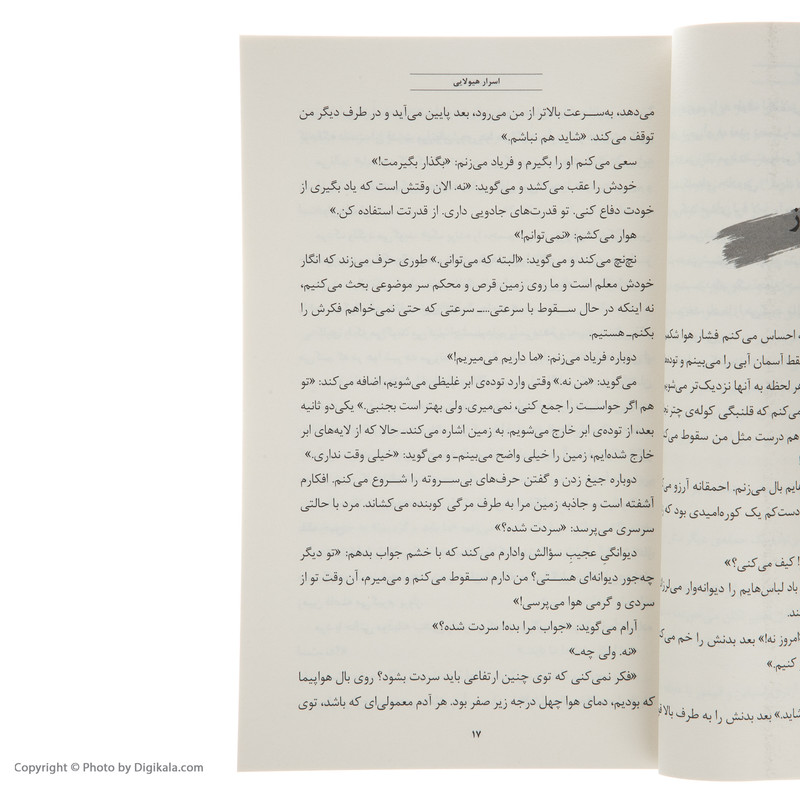 اسرار هیولایی
می‌دهد، به‌سرعت بالاتر از من می‌رود، بعد پایین می‌آید و در طرف دیگر من
توقف می‌کند. «شاید هم نباشم.»
سعی می‌کنم او را بگیرم و فریاد می‌زنم: «بگذار بگیرمت!»
خودش را عقب می‌کشد و می‌گوید: «نه. الان وقتش است که یاد بگیری از
خودت دفاع کنی. تو قدرت‌های جادویی داری. از قدرتت استفاده کن.»
هوار می‌کشم: «نمی‌توانم!»
نچ‌نچ می‌کند و می‌گوید: «البته که می‌توانی.» طوری حرف می‌زند که انگار
خودش معلم است و ما روی زمین قرص و محکم سر موضوعی بحث می‌کنیم،
نه اینکه در حال سقوط با سرعتی...ـ سرعتی که حتی نمی‌خواهم فکرش را
بکنم‌ـ هستیم.
دوباره فریاد می‌زنم: «ما داریم می‌میریم!»
می‌گوید: «من نه.» وقتی وارد توده‌ی ابر غلیظی می‌شویم، اضافه می‌کند: «تو
هم اگر حواست را جمع کنی، نمی‌میری. ولی بهتر است بجنبی.» یکی‌دو ثانیه
بعد، از توده‌ی ابر خارج می‌شویم. به زمین اشاره می‌کندـ حالا که از لایه‌های ابر
خارج شده‌ایم، زمین را خیلی واضح می‌بینم‌ـ و می‌گوید: «خیلی وقت نداری.»
دوباره جیغ زدن و گفتن حرف‌های بی‌سروته را شروع می‌کنم. افکارم
آشفته است و جاذبه زمین مرا به طرف مرگی کوبنده می‌کشاند. مرد با حالتی
سرسری می‌پرسد: «سردت شده؟»
دیوانگیِ عجیبِ سؤالش وادارم می‌کند که با خشم جواب بدهم: «تو دیگر
چه‌جور دیوانه‌ای هستی؟ من دارم سقوط می‌کنم و می‌میرم، آن وقت تو از
سردی و گرمی هوا می‌پرسی!»
آرام می‌گوید: «جواب مرا بده! سردت شده؟»
«نه. ولی چه‌ـ»
«فکر نمی‌کنی که توی چنین ارتفاعی باید سردت بشود؟ روی بال هواپیما
که بودیم، دمای هوا چهل درجه زیر صفر بود. هر آدم معمولی‌ای که باشد، توی
۱۷
احساس می‌کنم فشار هوا
آسمان آبی را می‌بینم و
هر لحظه به آنها نزدیک‌تر
می‌کنم که قلنبگی کوله‌ی
هم درست مثل من سقوط
بال می‌زنم. احمقانه آرزو
دست‌کم یک کوره‌امیدی بود که
کیف می‌کنی؟»
باد لباس‌هایم را دیوانه‌وار
امروز نه!» بعد بدنش را خم
کنیم.»
شاید.» بعد بدنش را به طرف بالا
Copyright © Photo by Digikala.com